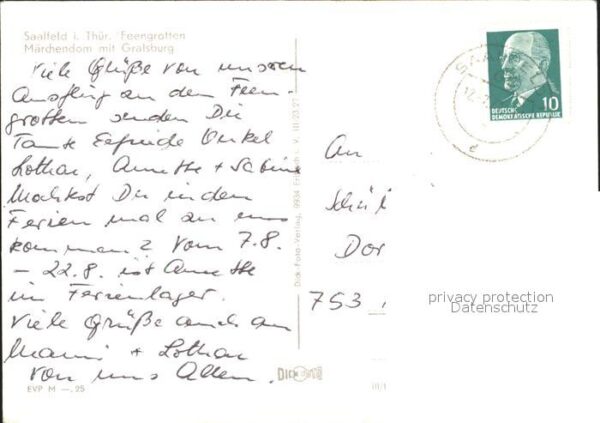 Saalfeld i. Thür. Feengrotten
Märchendom mit Gralsburg
Viele Grüße von unseren
Ausflug an den Feen-
grotten senden Dir
Tante Elfriede Onkel
Lothar, Annette + Sabine
Machst Du in den
Ferien mal zu uns
kommen? Vom 7.8.
– 22.8. ist Annette
im Ferienlager.
Viele Grüße auch an
Mami + Lothar
von uns Allen.
EVP M —,25
Dick-Foto-Verlag, 9934 Erlbach i. V.
DICK
DEUTSCHE
DEMOKRATISCHE REPUBLIK
10
An
Schül
Dor
753
privacy protection
Datenschutz